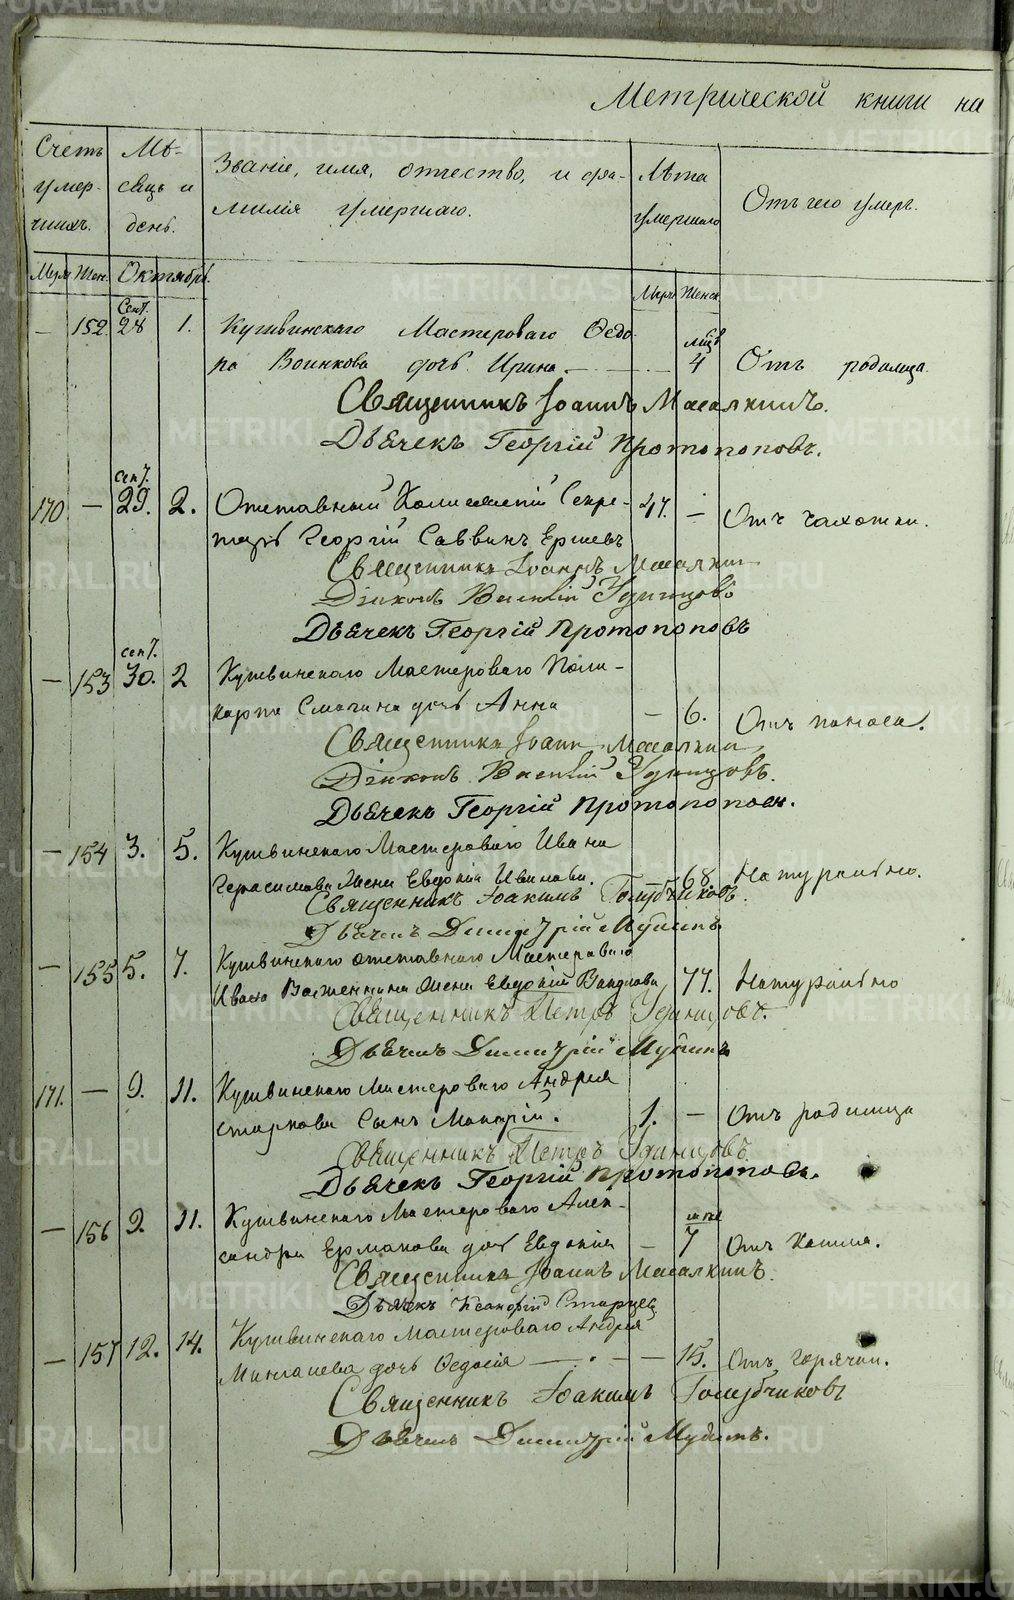 Метрической книги на
Счетъ умер- шихъ.
Мѣ- сяцъ и день.
Званіе, имя, отчество, и фа-
милія умершаго.
Лѣта умершаго
Отъ чего умеръ.
Муж. Жен. Октябрь.
Муж. Женск.
— 152. Сент. 28 1. Кушвинскаго Мастероваго Ѳедо-
ра Воинкова дочь Ирина. — мѣс. 4 Отъ родимца.
Священникъ Іоаннъ Масалкинъ.
Дьячекъ Георгій Протопоповъ.
170 — Сент. 29. 2. Отставный Коллежскій Секре- 47. — Отъ чахотки.
тарь Георгій Саввинъ Ершевъ
Священникъ Іоаннъ Масалкин
Діаконъ Василій Удинцовъ
Дьячекъ Георгій Протопоповъ
— 153 Сент. 30. 2 Кушвинскаго Мастероваго Поли-
карпа Смагина дочь Анна — 6. Отъ поноса.
Священникъ Іоанн Масалкин
Діаконъ Василій Удинцовъ.
Дьячекъ Георгій Протопопов.
— 154 3. 5. Кушвинскаго Мастероваго Ивана
Герасимова Жена Евдокія 68. Натурально.
Священникъ Іоакимъ Голубчиковъ.
Дьячекъ Димитрій Мубинъ
— 155 5. 7. Кушвинскаго отставнаго Мастероваго
Ивана Жена Евдокія 77. Натурально
Священникъ Петръ Удинцовъ.
Дьячекъ Димитрій Мубинъ
171. — 9. 11. Кушвинскаго Мастероваго Андрея
Старкова Сынъ Макарій. 1. — Отъ родимца
Священникъ Петръ Удинцовъ.
Дьячекъ Георгій Протопоповъ.
— 156 9. 11. Кушвинскаго Мастероваго Алек-
сандра Ермакова дочь Евдокія — 7 Отъ Кашля.
Священникъ Іоаннъ Масалкинъ.
Дьячекъ Старцев
— 157 12. 14. Кушвинскаго Мастероваго Андрея
дочь Ѳедосія — 15. Отъ горячки.
Священникъ Іоакимъ Голубчиковъ
Дьячекъ Димитрій Мубинъ.
METRIKI.GASO-URAL.RU